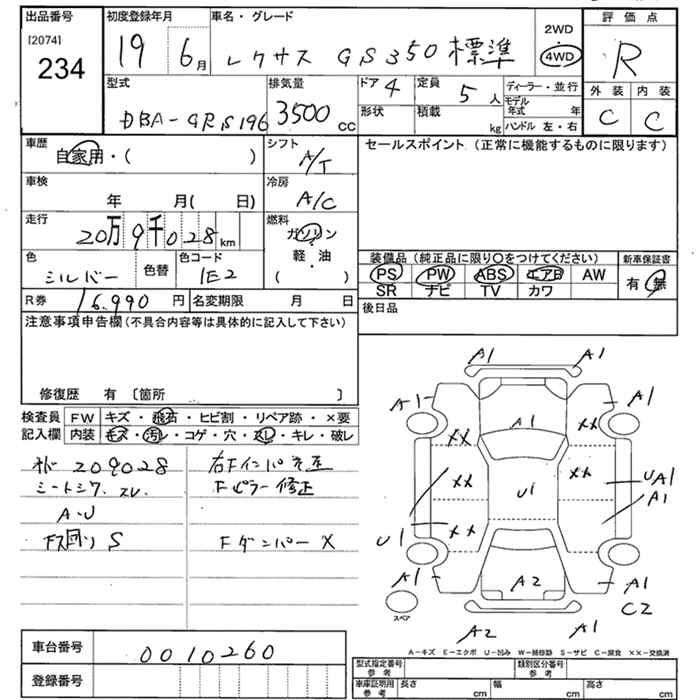 出品番号 初度登録年月 車名・グレード 2WD 評価点
[2074] 19 6月 レクサス GS350 標準 4WD R
234
型式 排気量 ドア 4 定員 5人 ディーラー・並行 外装 内装
DBA-GRS196 3500cc 形状 積載 kg モデル年式 年 C C
ハンドル 左・右
車歴 自家用・( ) シフト A/T セールスポイント (正常に機能するものに限ります)
車検 年 月( 日) 冷房 A/C
走行 20万9千028km 燃料 ガソリン
色 シルバー 色替 色コード 1E2 軽・油 ( )
装備品 (純正品に限り〇をつけてください) 新車保証書
PS PW ABS エアB AW 有・無
SR ナビ TV カワ
R券 16,990円 名変期限 月 日 後日品
注意事項申告欄(不具合内容等は具体的に記入して下さい)
修復歴 有 〔箇所 〕
検査員 FW キズ・飛石・ヒビ割・リペア跡・×要
記入欄 内装 キズ・汚レ・コゲ・穴・スレ・キレ・破レ
209028 右Fインパネ歪
シートシワ、スレ、 Fピラー修正
A・U
S Fダンパー×
A1 A1
A1 A1 A1
×× ××
×× ×× UA1
U1 A1
U1 ××
A1 A2 A1
C2
スペア
A2 A1
A-キズ E-エクボ U-凹み W-補修跡 S-サビ C-腐食 ××-交換済
車台番号 0010260
登録番号
型式指定番号 参考 類別区分番号 参考
車庫証明用 参考 長さ cm 幅 cm 高さ cm